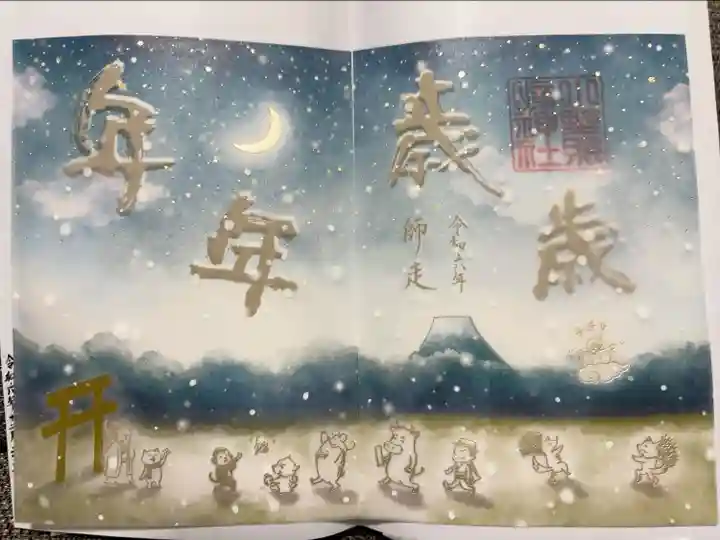 年年
歳歳
令和六年
師走